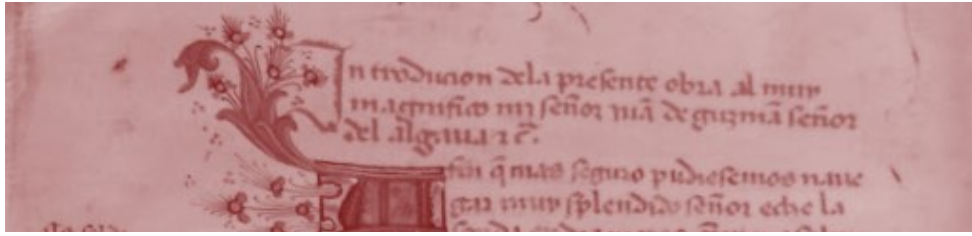 Introducion dela presente obra al muy
magnifico mi señor juã de guzmã señor
del algaua ⁊ c̃.
fin q̃ mas seguro pudiesemos naue
gar muy splendido señor eche la